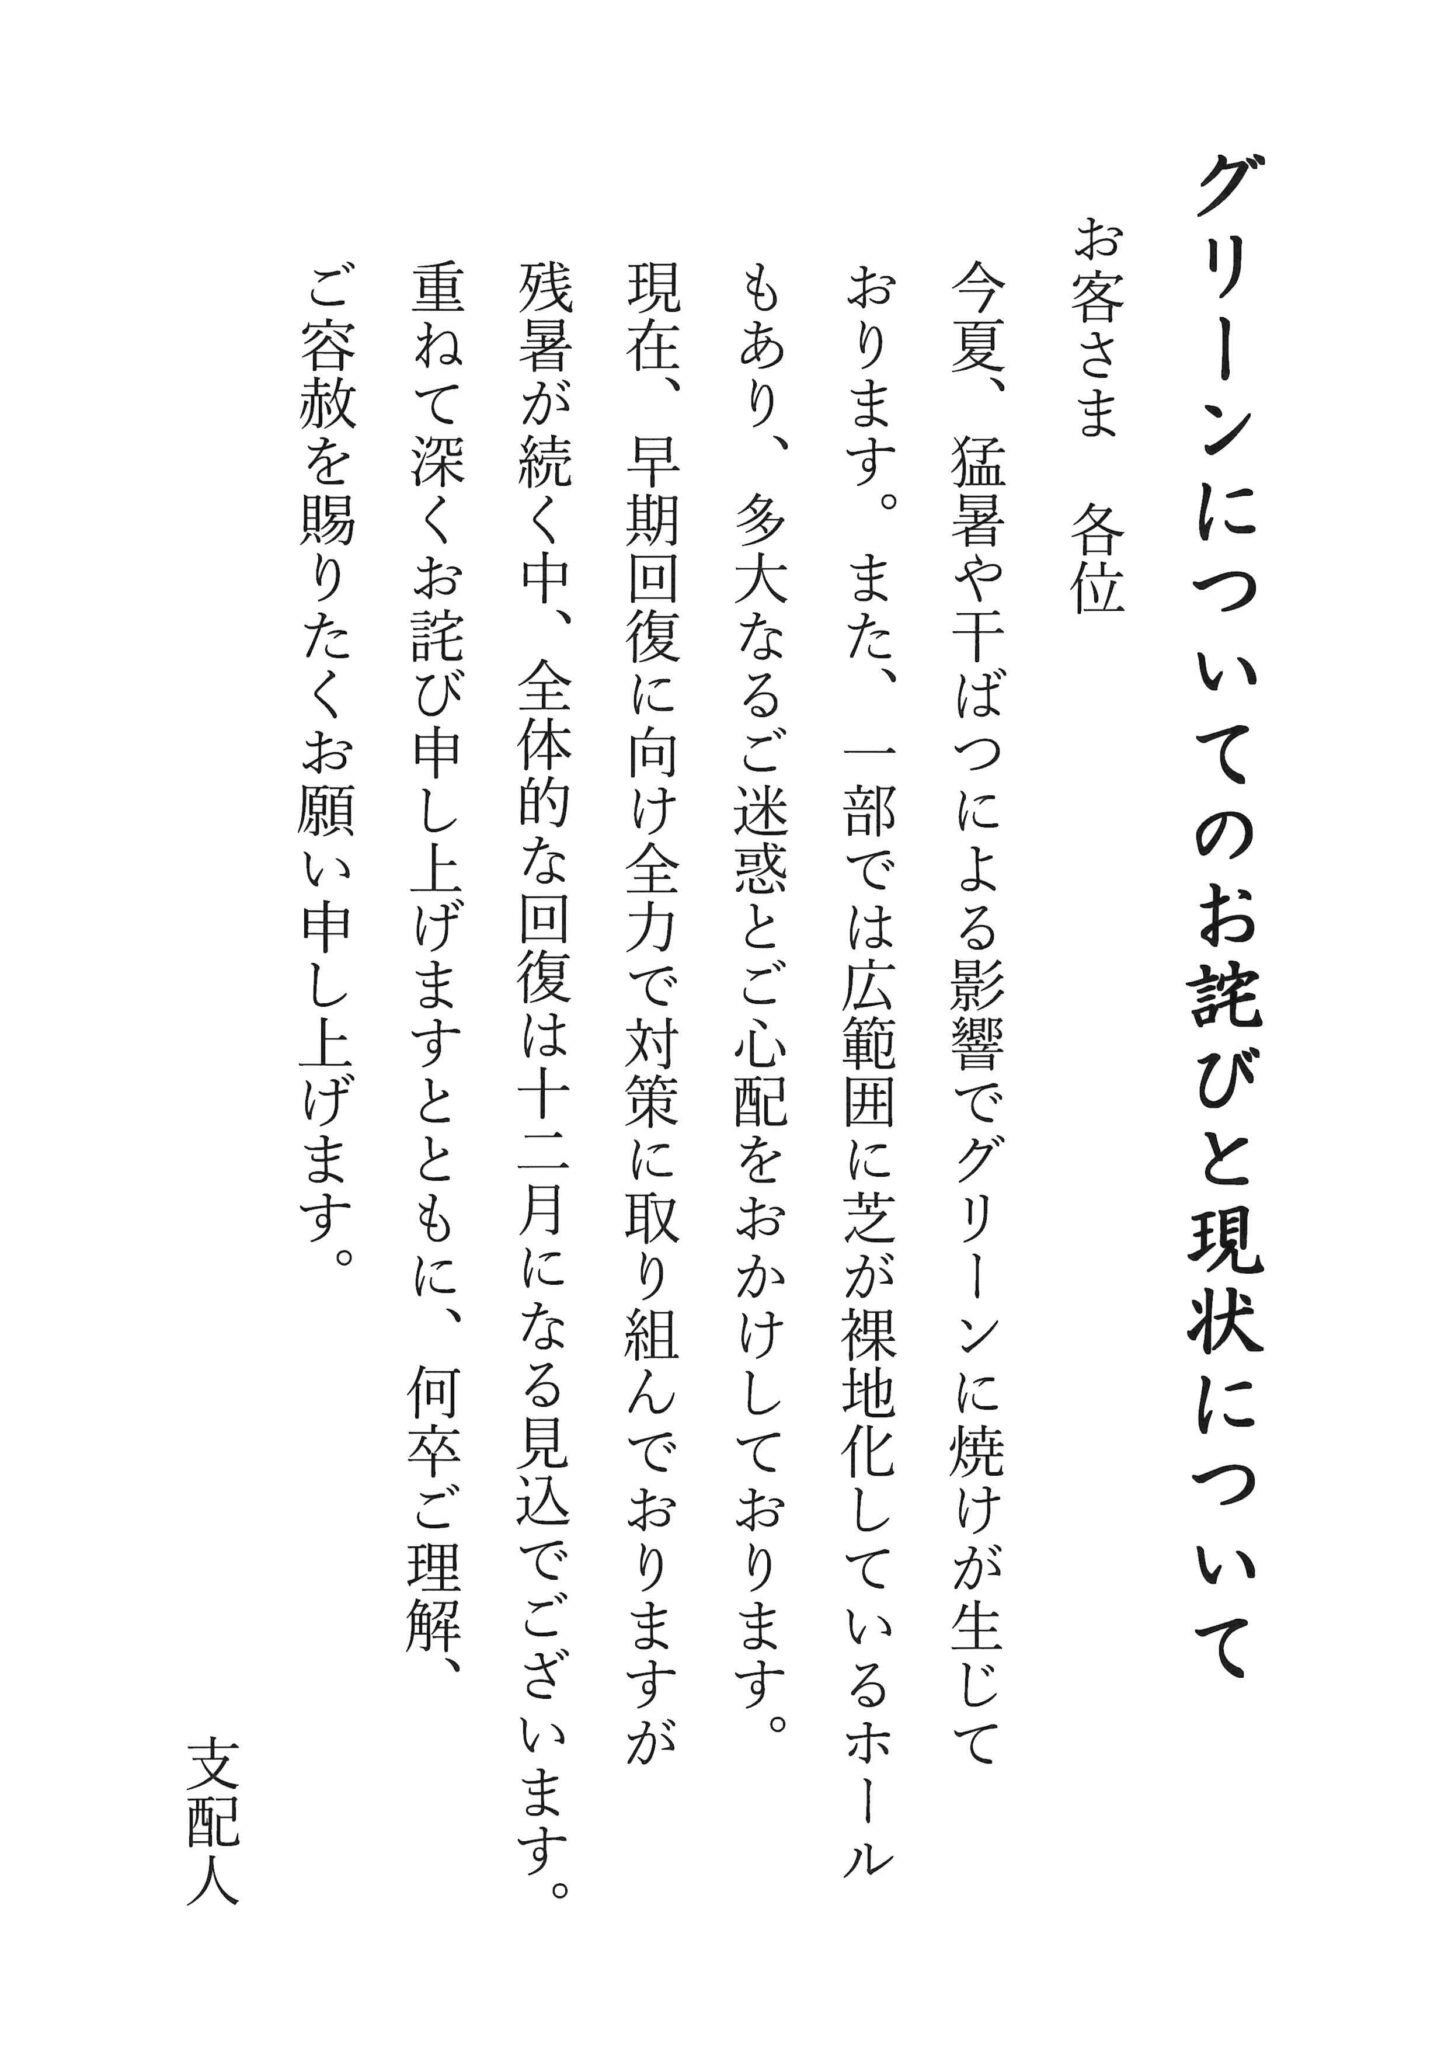 グリーンについてのお詫びと現状について
お客さま　各位
今夏、猛暑や干ばつによる影響でグリーンに焼けが生じて
おります。また、一部では広範囲に芝が裸地化しているホール
もあり、多大なるご迷惑とご心配をおかけしております。
現在、早期回復に向け全力で対策に取り組んでおりますが
残暑が続く中、全体的な回復は十二月になる見込でございます。
重ねて深くお詫び申し上げますとともに、何卒ご理解、
ご容赦を賜りたくお願い申し上げます。
支配人